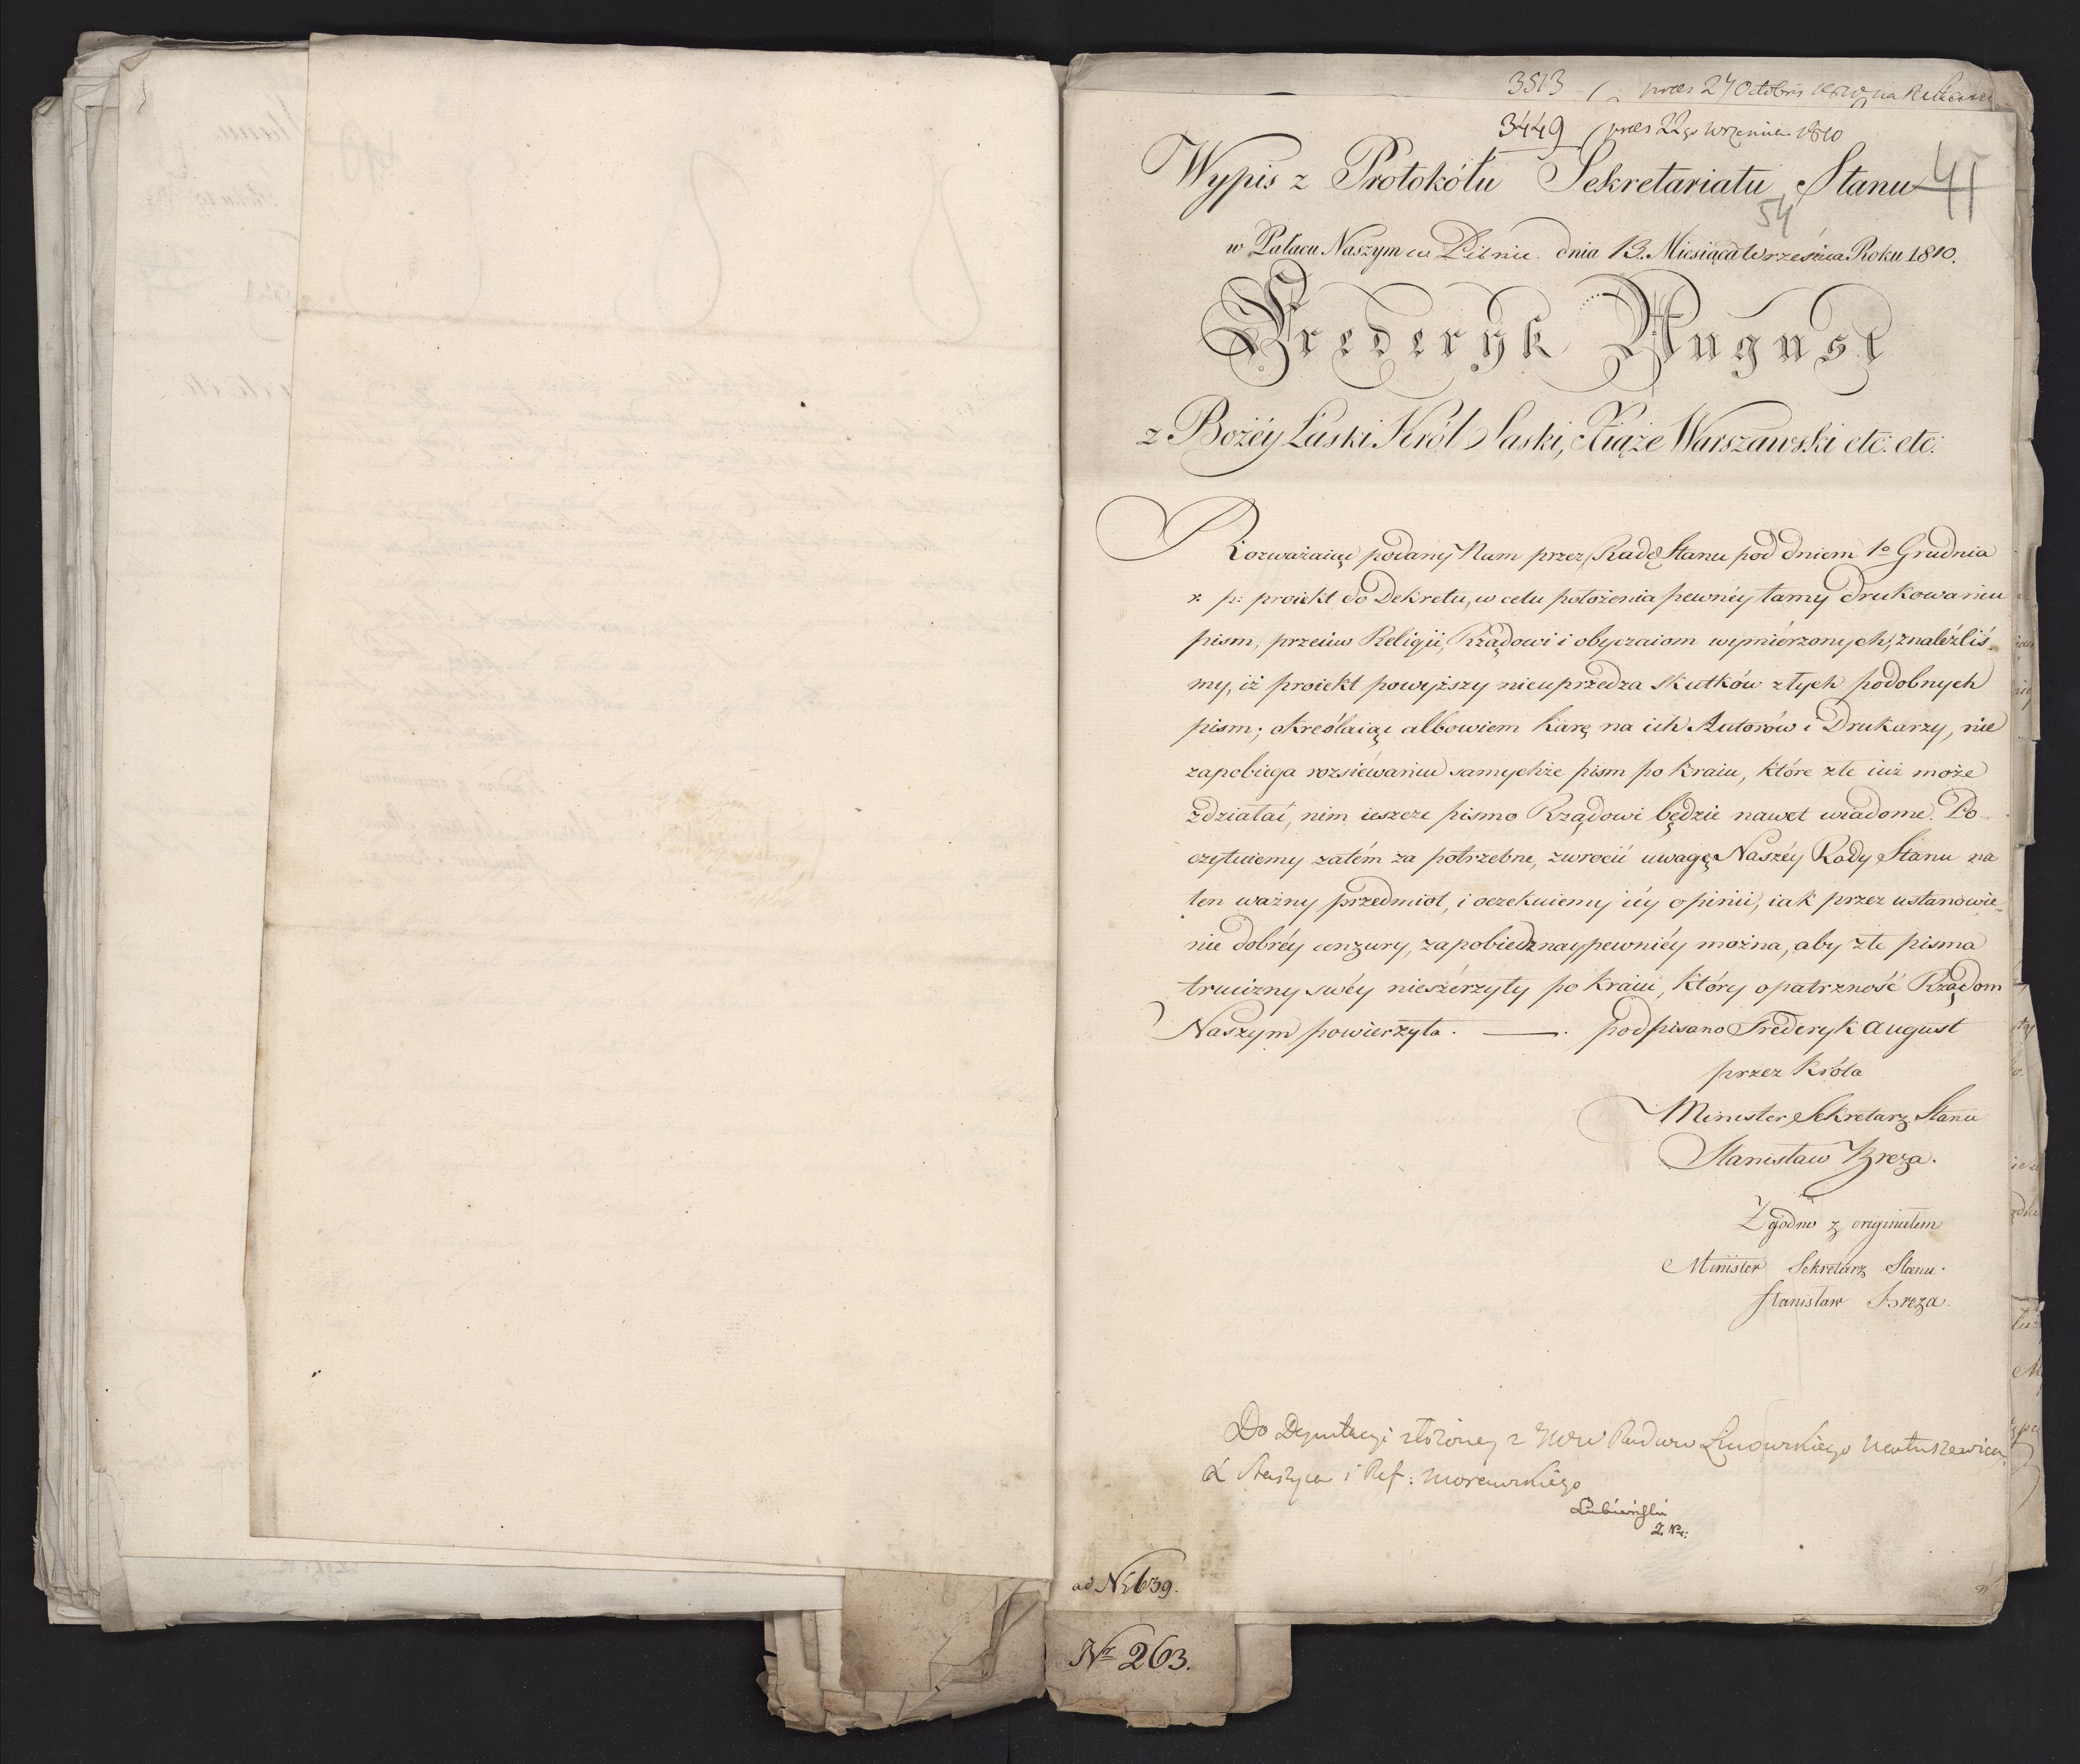 3513 præs 27 Octobris
3449 præs 22go Września 1810
Wypis z Protokółu Sekretariatu Stanu 41
54
w Pałacu Naszym w Pilnic dnia 13. Miesiąca Września Roku 1810.
Frederyk August
z Bożéy Łaski Król Saski, Xiąże Warszawski etc: etc:
Rozważaiąc podany Nam przez Radę Stanu pod dniem 1o Grudnia
r: p: proiekt do Dekretu, w celu położenia pewnéy tamy drukowaniu
pism, przeciw Religii, Rządowi i obyczaiom wymiérzonych, znaleźliś-
my, iż proiekt powyższy nieuprzedza skutków złych podobnych
pism; określaiąc albowiem karę na ich Autorów i Drukarzy, nie
zapobiega rozsiéwaniu samychże pism po kraiu, które złe iuż może
zdziałać, nim ieszcze pismo Rządowi będzie nawet wiadome. Po-
czytuiemy zatém za potrzebne, zwrócić uwagę Naszéy Rady Stanu na
ten ważny przedmiot, i oczekuiemy iéy opinii, iak przez ustanowie-
nie dobréy cenzury, zapobiedz naypewniéy można, aby złe pisma
trucizny swéy nieszérzyły po kraiu, który opatrzność Rządom
Naszym powierzyła. — podpisano Frederyk August
przez Króla
Minister Sekretarz Stanu
Stanisław Breza.
Zgodno z originałem
Minister Sekretarz Stanu.
Stanisław Breza.
Do Deputacyi złożoney z JWW Radców Linowskiego Matuszewica
& Staszyca i Ref: Morawskiego
Łubieński
ad N 639.
Nr 263.